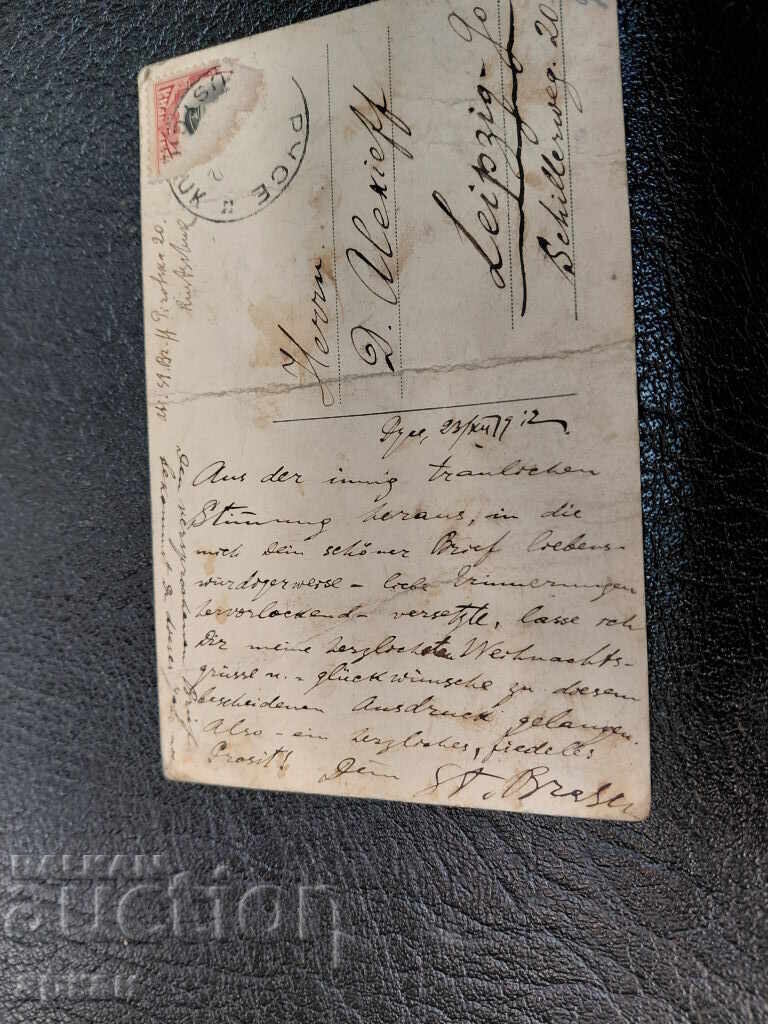 РУСЕ
Herrn
D. Alexieff
Leipzig-Go
Schillerweg. 20
23/XII 912
Aus der innig traulichen
Stimmung heraus, in die
mich Dein schöner Brief liebens-
würdigerweise - liebe Erinnerungen
hervorlockend - versetzte, lasse ich
Dir meine herzlichsten Weihnachts-
grüsse u. - glückwünsche zu diesem
bescheidenen Ausdruck gelangen.
Also - ein herzliches, fideles
Prosit! Dein St.
Den versprochenen Brief
bekommst D
20
Rustschuk
BALKAN
auction